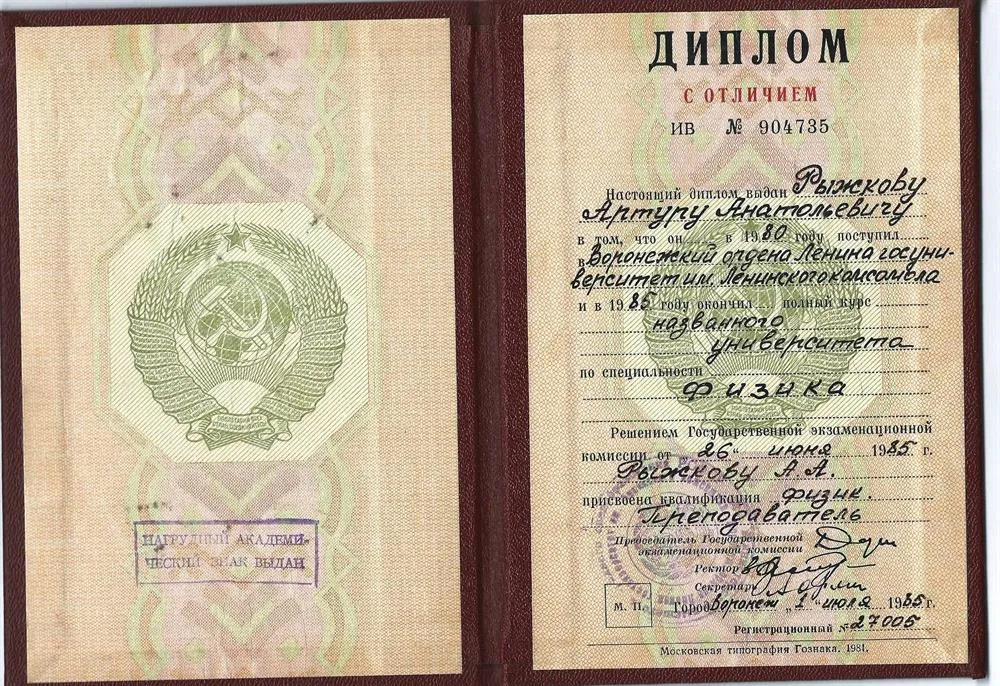 НАГРУДНЫЙ АКАДЕМИ-
ЧЕСКИЙ ЗНАК ВЫДАН
ДИПЛОМ
С ОТЛИЧИЕМ
ИВ № 904735
Настоящий диплом выдан Рыжкову
Артуру Анатольевичу
в том, что он в 1980 году поступил
в Воронежский ордена Ленина госуни-
верситет им. Ленинского комсомола
и в 1985 году окончил полный курс
названного
университета
по специальности
физика
Решением Государственной экзаменационной
комиссии от „26“ июня 1985 г.
Рыжкову А. А.
присвоена квалификация физик.
Преподаватель
Председатель Государственной
экзаменационной комиссии
Ректор
Секретарь
М. П. Город Воронеж „1“ июля 1985 г.
Регистрационный № 27005
Московская типография Гознака. 1981.